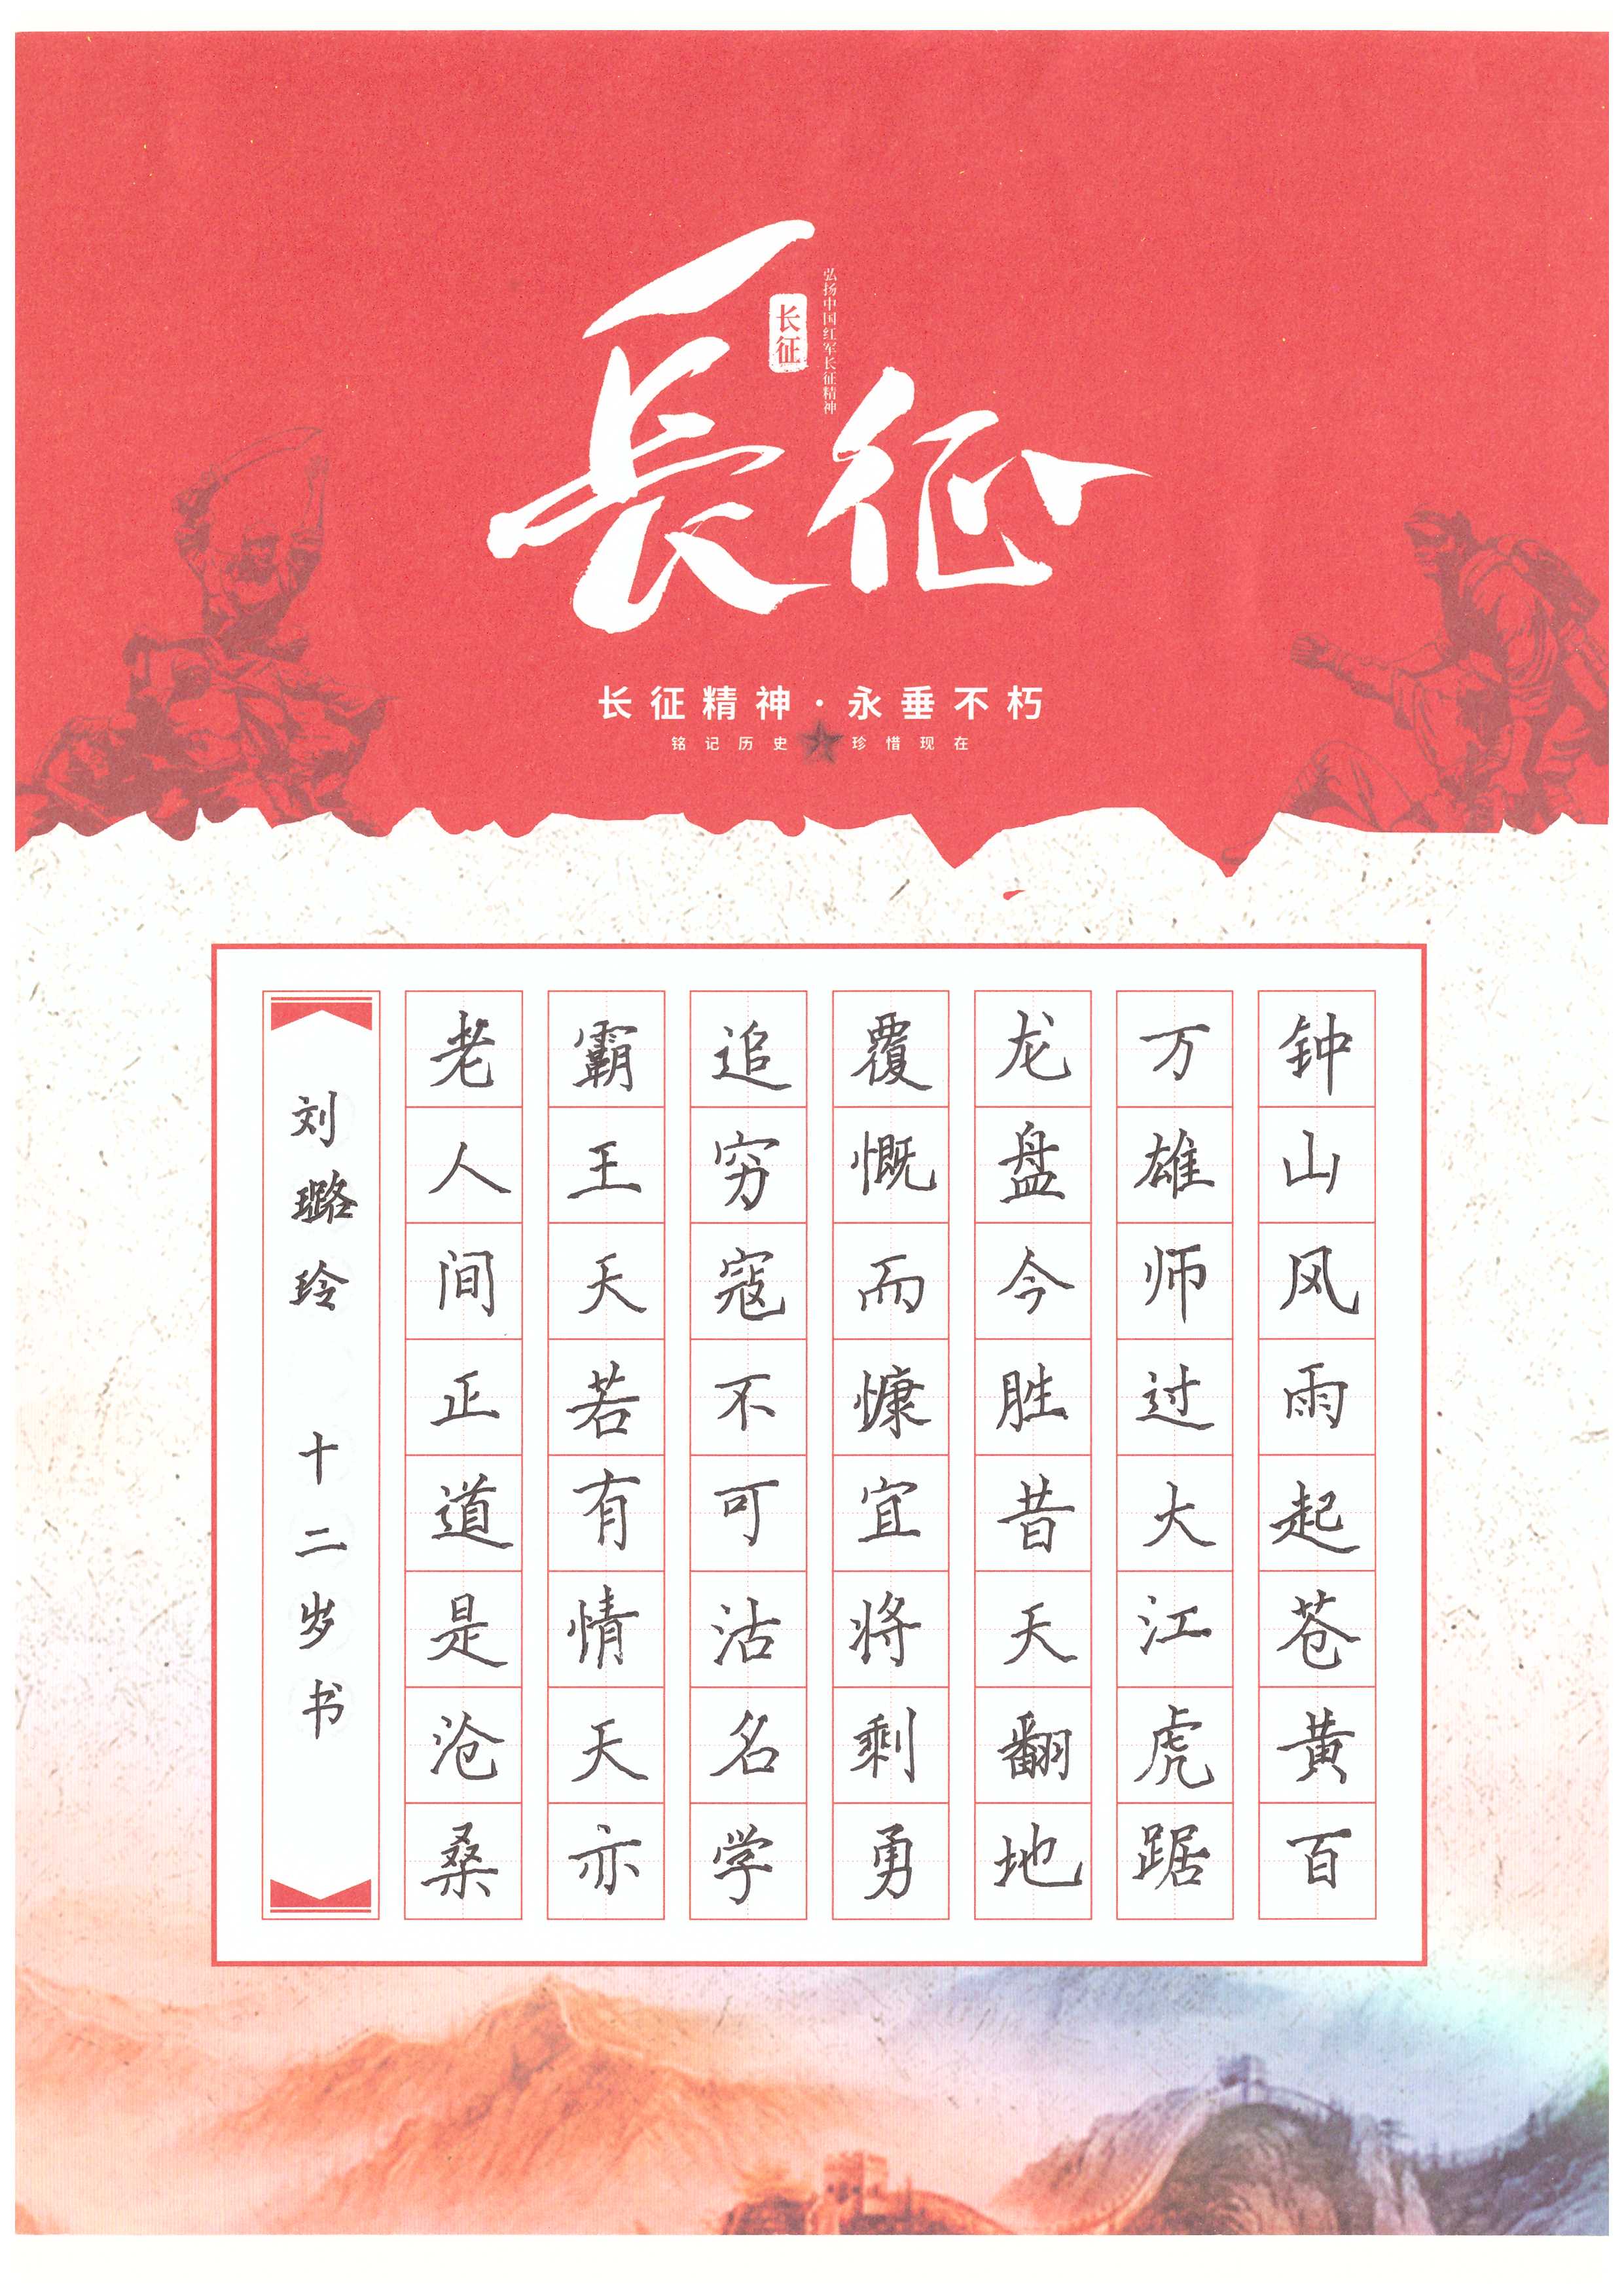 長征
长征
弘扬中国红军长征精神
长征精神·永垂不朽
铭记历史 珍惜现在
钟山风雨起苍黄百
万雄师过大江虎踞
龙盘今胜昔天翻地
覆慨而慷宜将剩勇
追穷寇不可沽名学
霸王天若有情天亦
老人间正道是沧桑
刘璐玲 十二岁书